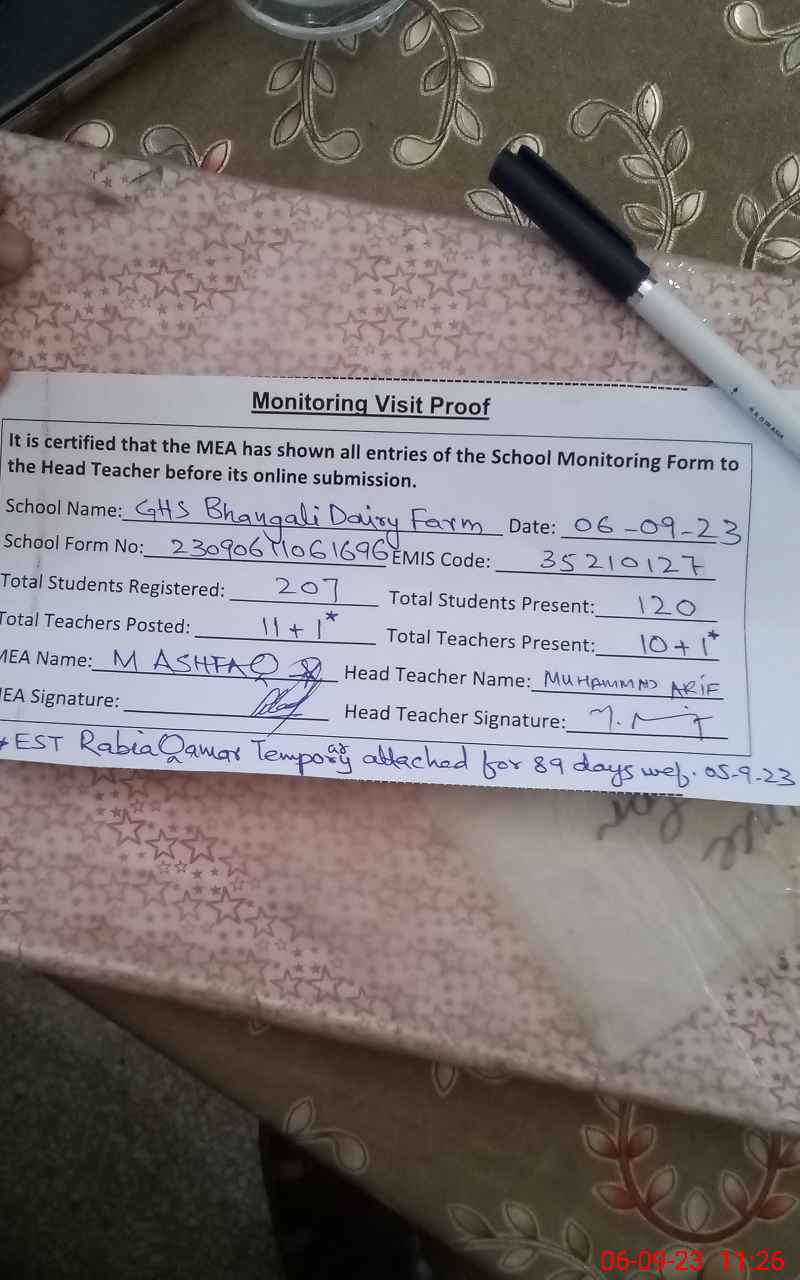 Monitoring Visit Proof
It is certified that the MEA has shown all entries of the School Monitoring Form to
the Head Teacher before its online submission.
School Name: GHS Bhangali Dairy Farm Date: 06-09-23
School Form No: 23090611061696 EMIS Code: 35210127
Total Students Registered: 207 Total Students Present: 120
Total Teachers Posted: 11+1* Total Teachers Present: 10+1*
MEA Name: M ASHFAQ Head Teacher Name: MUHAMMAD ARIF
MEA Signature: Head Teacher Signature:
* EST Rabia Qamar Temporary attached for 89 days wef. 05-9-23
06-09-23 11:26